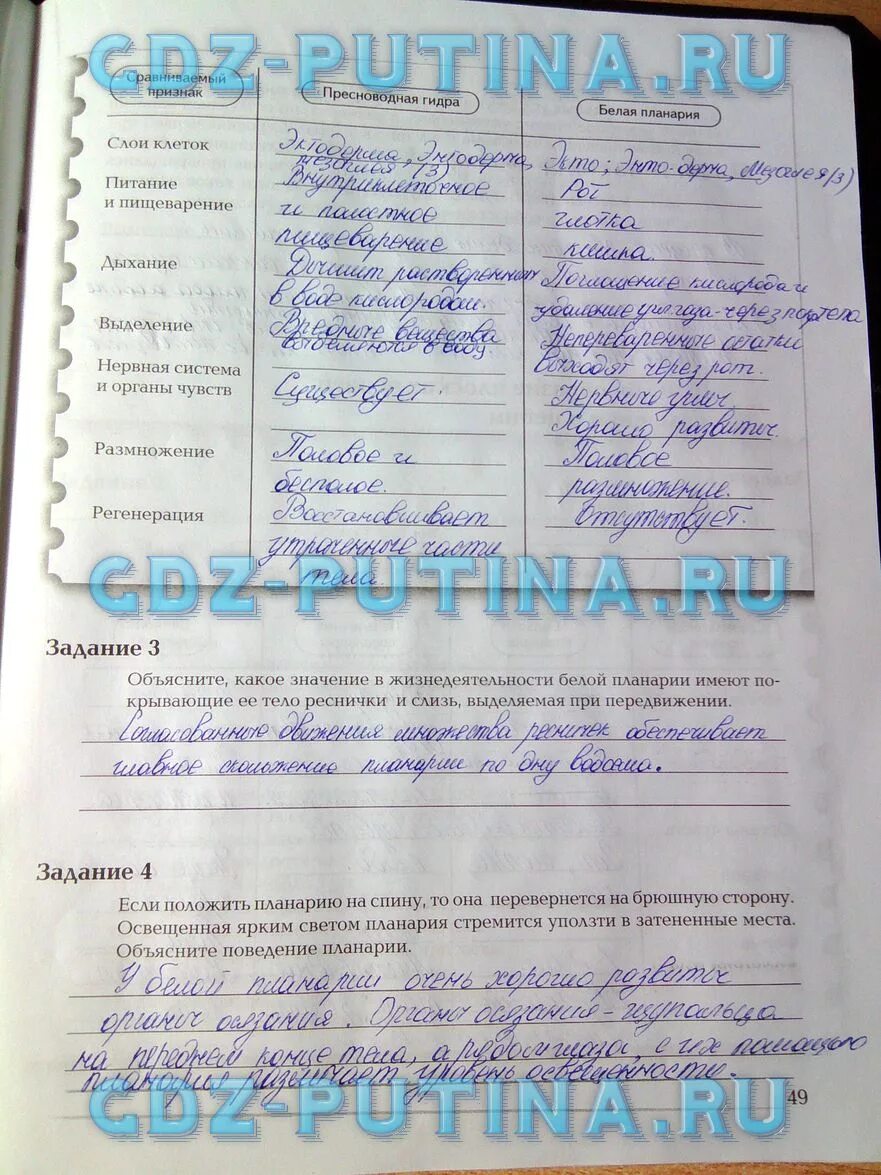 GDZ-PUTINA.RU
Сравниваемый признак
Пресноводная гидра
Белая планария
Слои клеток
Эктодерма, Энтодерма,
мезоглея (3)
Экто; Энто-дерма, Мезоглея (3)
Питание
и пищеварение
Внутриклеточное
и полостное
пищеварение
Рот
глотка
кишка.
Дыхание
Дышит растворенным
в воде кислородом.
Поглощение кислорода и
удаление угл газа-через пов тела
Выделение
Вредные вещества
выделяются в воду
Непереваренные остатки
выходят через рот.
Нервная система
и органы чувств
Существует.
Нервные узлы
Хорошо развиты.
Размножение
Половое и
бесполое.
Половое
размножение.
Регенерация
Восстанавливает
утраченные части
тела.
Отсутствует.
GDZ-PUTINA.RU
Задание 3
Объясните, какое значение в жизнедеятельности белой планарии имеют по-
крывающие ее тело реснички и слизь, выделяемая при передвижении.
Согласованные движения множества ресничек обеспечивает
главное скольжение планарии по дну водоема.
Задание 4
Если положить планарию на спину, то она перевернется на брюшную сторону.
Освещенная ярким светом планария стремится уползти в затененные места.
Объясните поведение планарии.
У белой планарии очень хорошо развиты
органы осязания. Органы осязания-щупальца
на переднем конце тела, а рядом глаза, с их помощью
планария различает уровень освещенности.
49
GDZ-PUTINA.RU